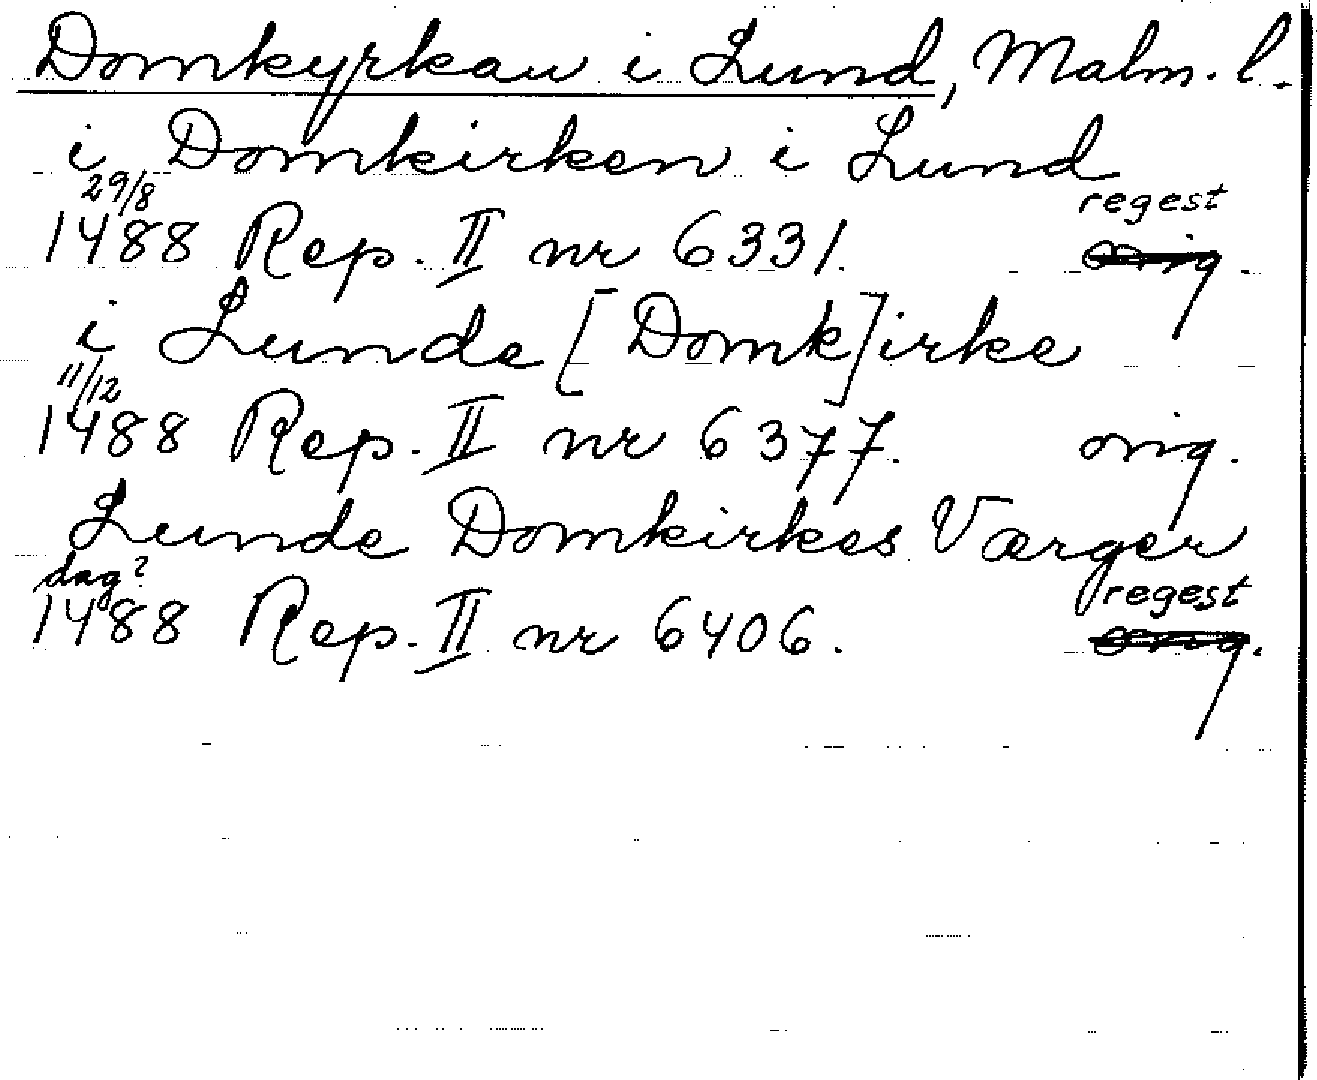 Domkyrkan i Lund, Malm. l.
i Domkirken i Lund
29/8 regest
1488 Rep. II nr 6331. orig.
i Lunde [Domk]irke
11/12
1488 Rep. II nr 6377. orig.
Lunde Domkirkes Værger
dag? regest
1488 Rep. II nr 6406. orig.